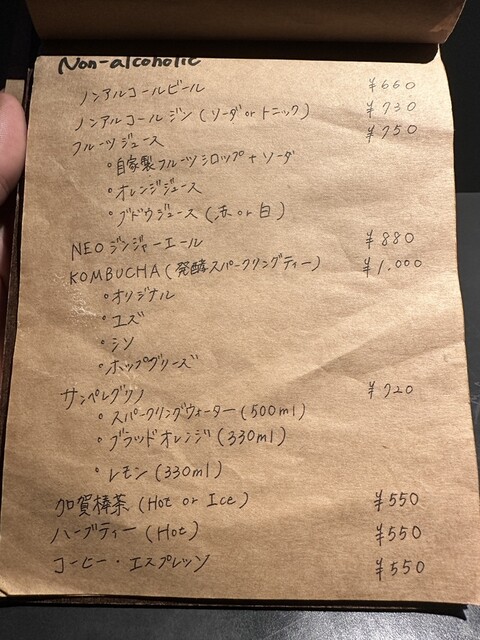 Non-alcoholic
ノンアルコールビール ¥660
ノンアルコールジン (ソーダ or トニック) ¥730
フルーツジュース ¥750
・自家製フルーツシロップ + ソーダ
・オレンジジュース
・ブドウジュース (赤 or 白)
NEO ジンジャーエール ¥880
KOMBUCHA (発酵スパークリングティー) ¥1,000
・オリジナル
・ユズ
・シソ
・ホップグリーズ
サンペレグリノ ¥720
・スパークリングウォーター (500ml)
・ブラッドオレンジ (330ml)
・レモン (330ml)
加賀棒茶 (Hot or Ice) ¥550
ハーブティー (Hot) ¥550
コーヒー・エスプレッソ ¥550